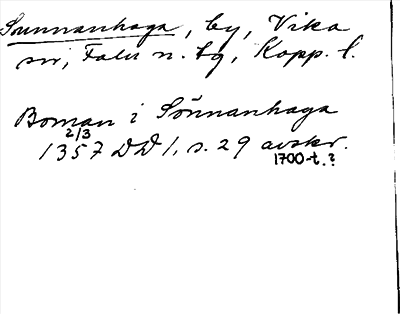 Sunnanhaga, by, Vika
sn, Falu n. tg, Kopp. l.
Boman i Sönnanhaga
2/3
1357 DD 1, s. 29 avskr.
1700-t.?